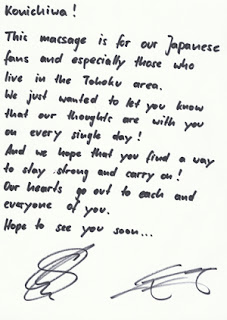 Konichiwa!
This massage is for our Japanese
fans and especially those who
live in the Tohoku area.
We just wanted to let you know
that our thoughts are with you
on every single day!
And we hope that you find a way
to stay strong and carry on!
Our hearts go out to each and
everyone of you.
Hope to see you soon...